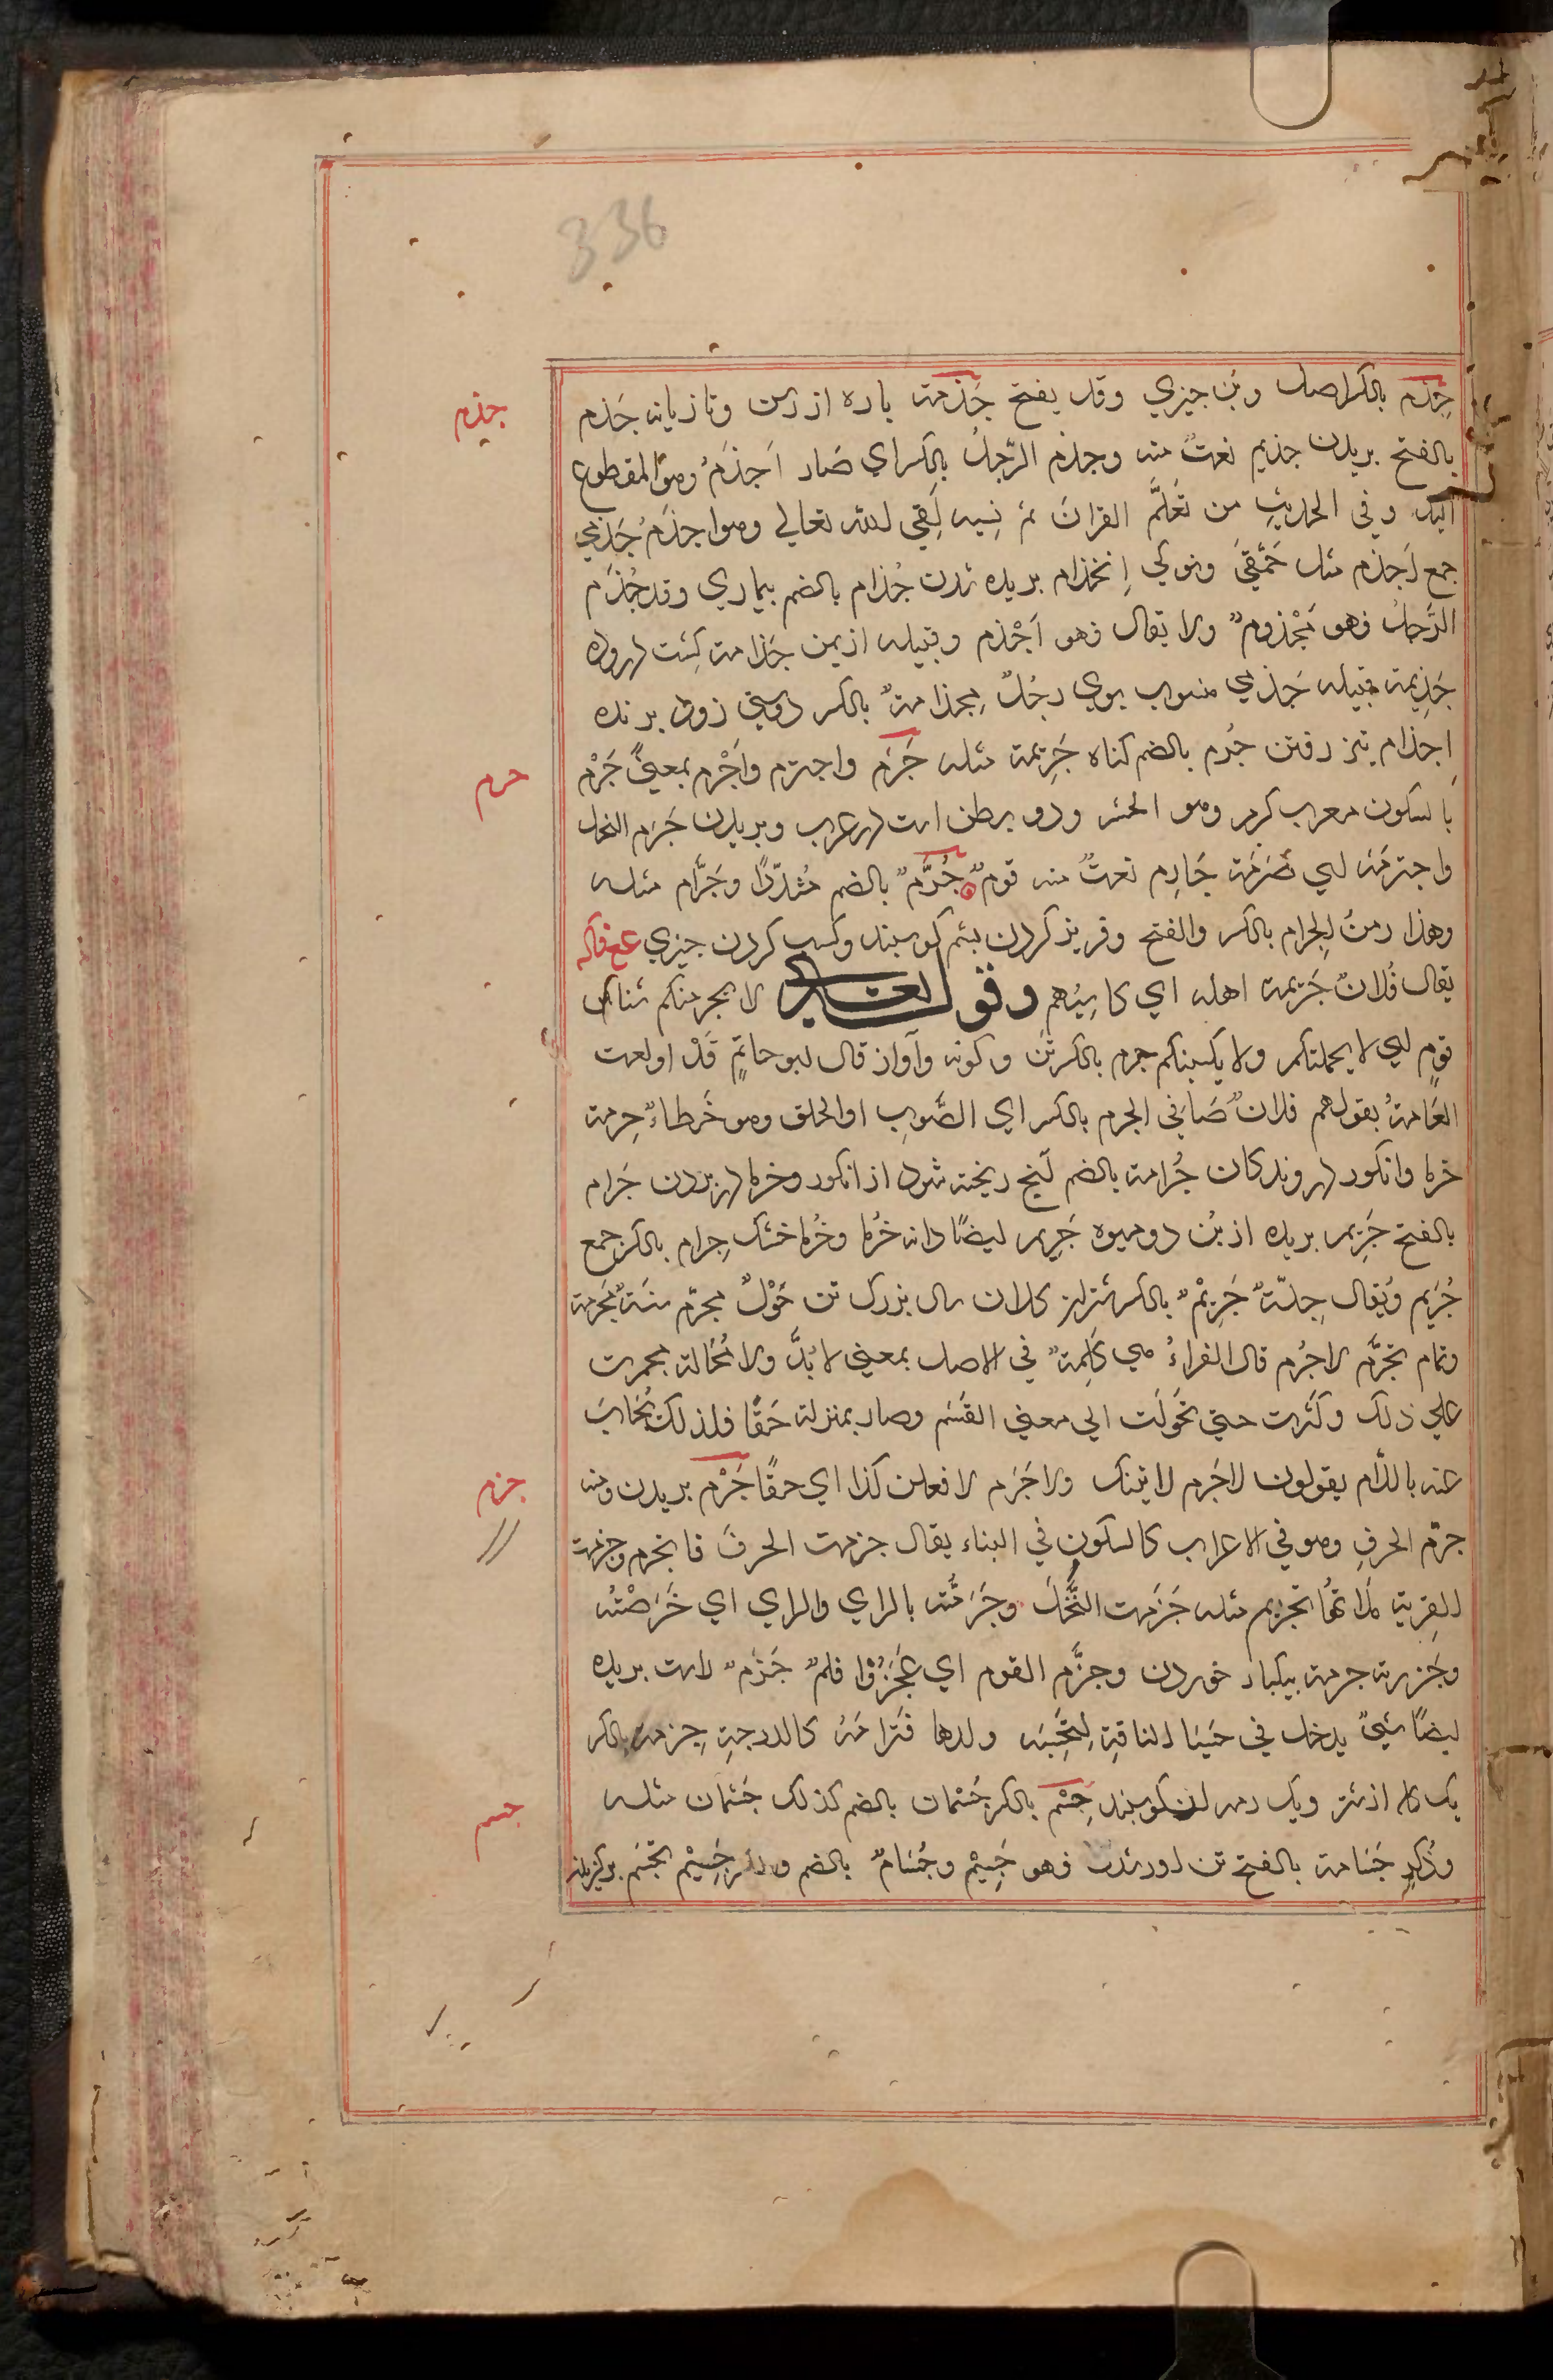 336
جذم
جِذم بالكسر اصل وبُن چيزي وقد يفتح جَذمة پاره از رسن وتازيانه جَذم
بالفتح بريدن جذيم نعتٌ منه وجذم الرّجلُ بالكسر اي صَار اَجذَمُ وهوَ المقطوع
اليد وفى الحديثِ من تَعَلَّمَ القرانَ ثم نسيه لَقِي الله تعالي وهو اجذَمُ جَذمي
جمع اَجذم مثل حَمْقَي ونوكي اِنخذام بريده شدن جُذام بالضم بيماري وقد جُذِم
الرَّجلُ فهو مَجْذومٌ ولا يقال فهو اَجْذم وقبيله از يمن جَذامة كِشت درودہ
جَذِيمة قبيله جَذمي منسوب بوي رجُلٌ مِجذامةٌ بالكسر دوستي زود برنده
حرم
اِجذام تيز رفتن جُرم بالضم كناه جَرِيمة مثله جَرَم واجترم واَجْرم بمعنًي جَرْم
بالسكون معرب كرم وهو الحر ودو بطن است در عرب وبريدن جَرَم النخل
واجترمَهُ اي صَرَمَهُ جَارِم نعتٌ منه قومٌ جُرَّمٌ بالضم مُشدّدًا وجَرَّام مثله
وهذا زمنُ الجرام بالكسر والفتح وفريز كردن پشم كوسپند وكسب كردن چيزي
يقال فُلانٌ جَرِيمة اهله اي كاسِبُهم وقوله تعالى لا يجرمنكم شنأن
قومٍ اي لا يحملنكم ولا يكسبنكم جرم بالكسر تَن وكونه وآواز قال ابو حاتمٍ قَدْ اولعت
العَامةُ بقولهم فلانٌ صَافي الجرم بالكسر اي الصَّوب او الحلق وهو خَطاءٌ جِرمة
خرما وانكور دروندكان جُرامة بالضم آنچ ريخته شود از انكور وخرما در بردن جَرام
بالفتح جَرِيم بريده از بُن دوميوه جَرِيم ايضًا دانه خُرما وخُرما خشك جِرام بالكسر جمع
جُرَيم ويُقال جِلّةٌ جَرِيمٌ بالكسر شتران كلان سال بزرك تن حَوْلٌ مجرّم سنَةٌ مُجَرمة
وتمام تجرَّم لاجَرم قال الفراءُ هي كَلِمةٌ في الاصل بمعني لا بُدَّ ولا مُحَالة فجرت
علي ذلك وكثرت حتي تحوّلَت الي معني القَسَم وصار بمنزلة حَقًا فلذلك يُجَاب
جزم
عنه باللّام يقولون لاجَرم لاتينك ولا جَرَم لافعلن كذا اي حقًا جَزْم بريدن ومنه
جزم الحرفِ وهو في الاعراب كالسكونِ في البناء يقال جزمت الحرفَ فانجزم وجزمت
القِربة مَلاتُها تجزيم مثله جَزَمت النَّخلَ وجَزَمتُه بالزاي والراي اي خَرَصْتُه
وجَزرته جزمة بيكبار خوردن وجزَّم القوم اي عَجَزُوْا قلمٌ جَزْمٌ راست بريده
ايضًا شيٌ يدخل في حَيَاءِ الناقةِ لِتَحْسَبَه ولدها فتَرامَهُ كالدرجةِ جِزمة بالكسر
جسم
يك كله از شتر ويك رمه از كوسپند جِسْم بالكسر جُسْمان بالضم كذلك جُثمان مثله
وذُكر جَسَامة بالفتح تن اور شدن فهو جَسِيْم وجُسَامٌ بالضم